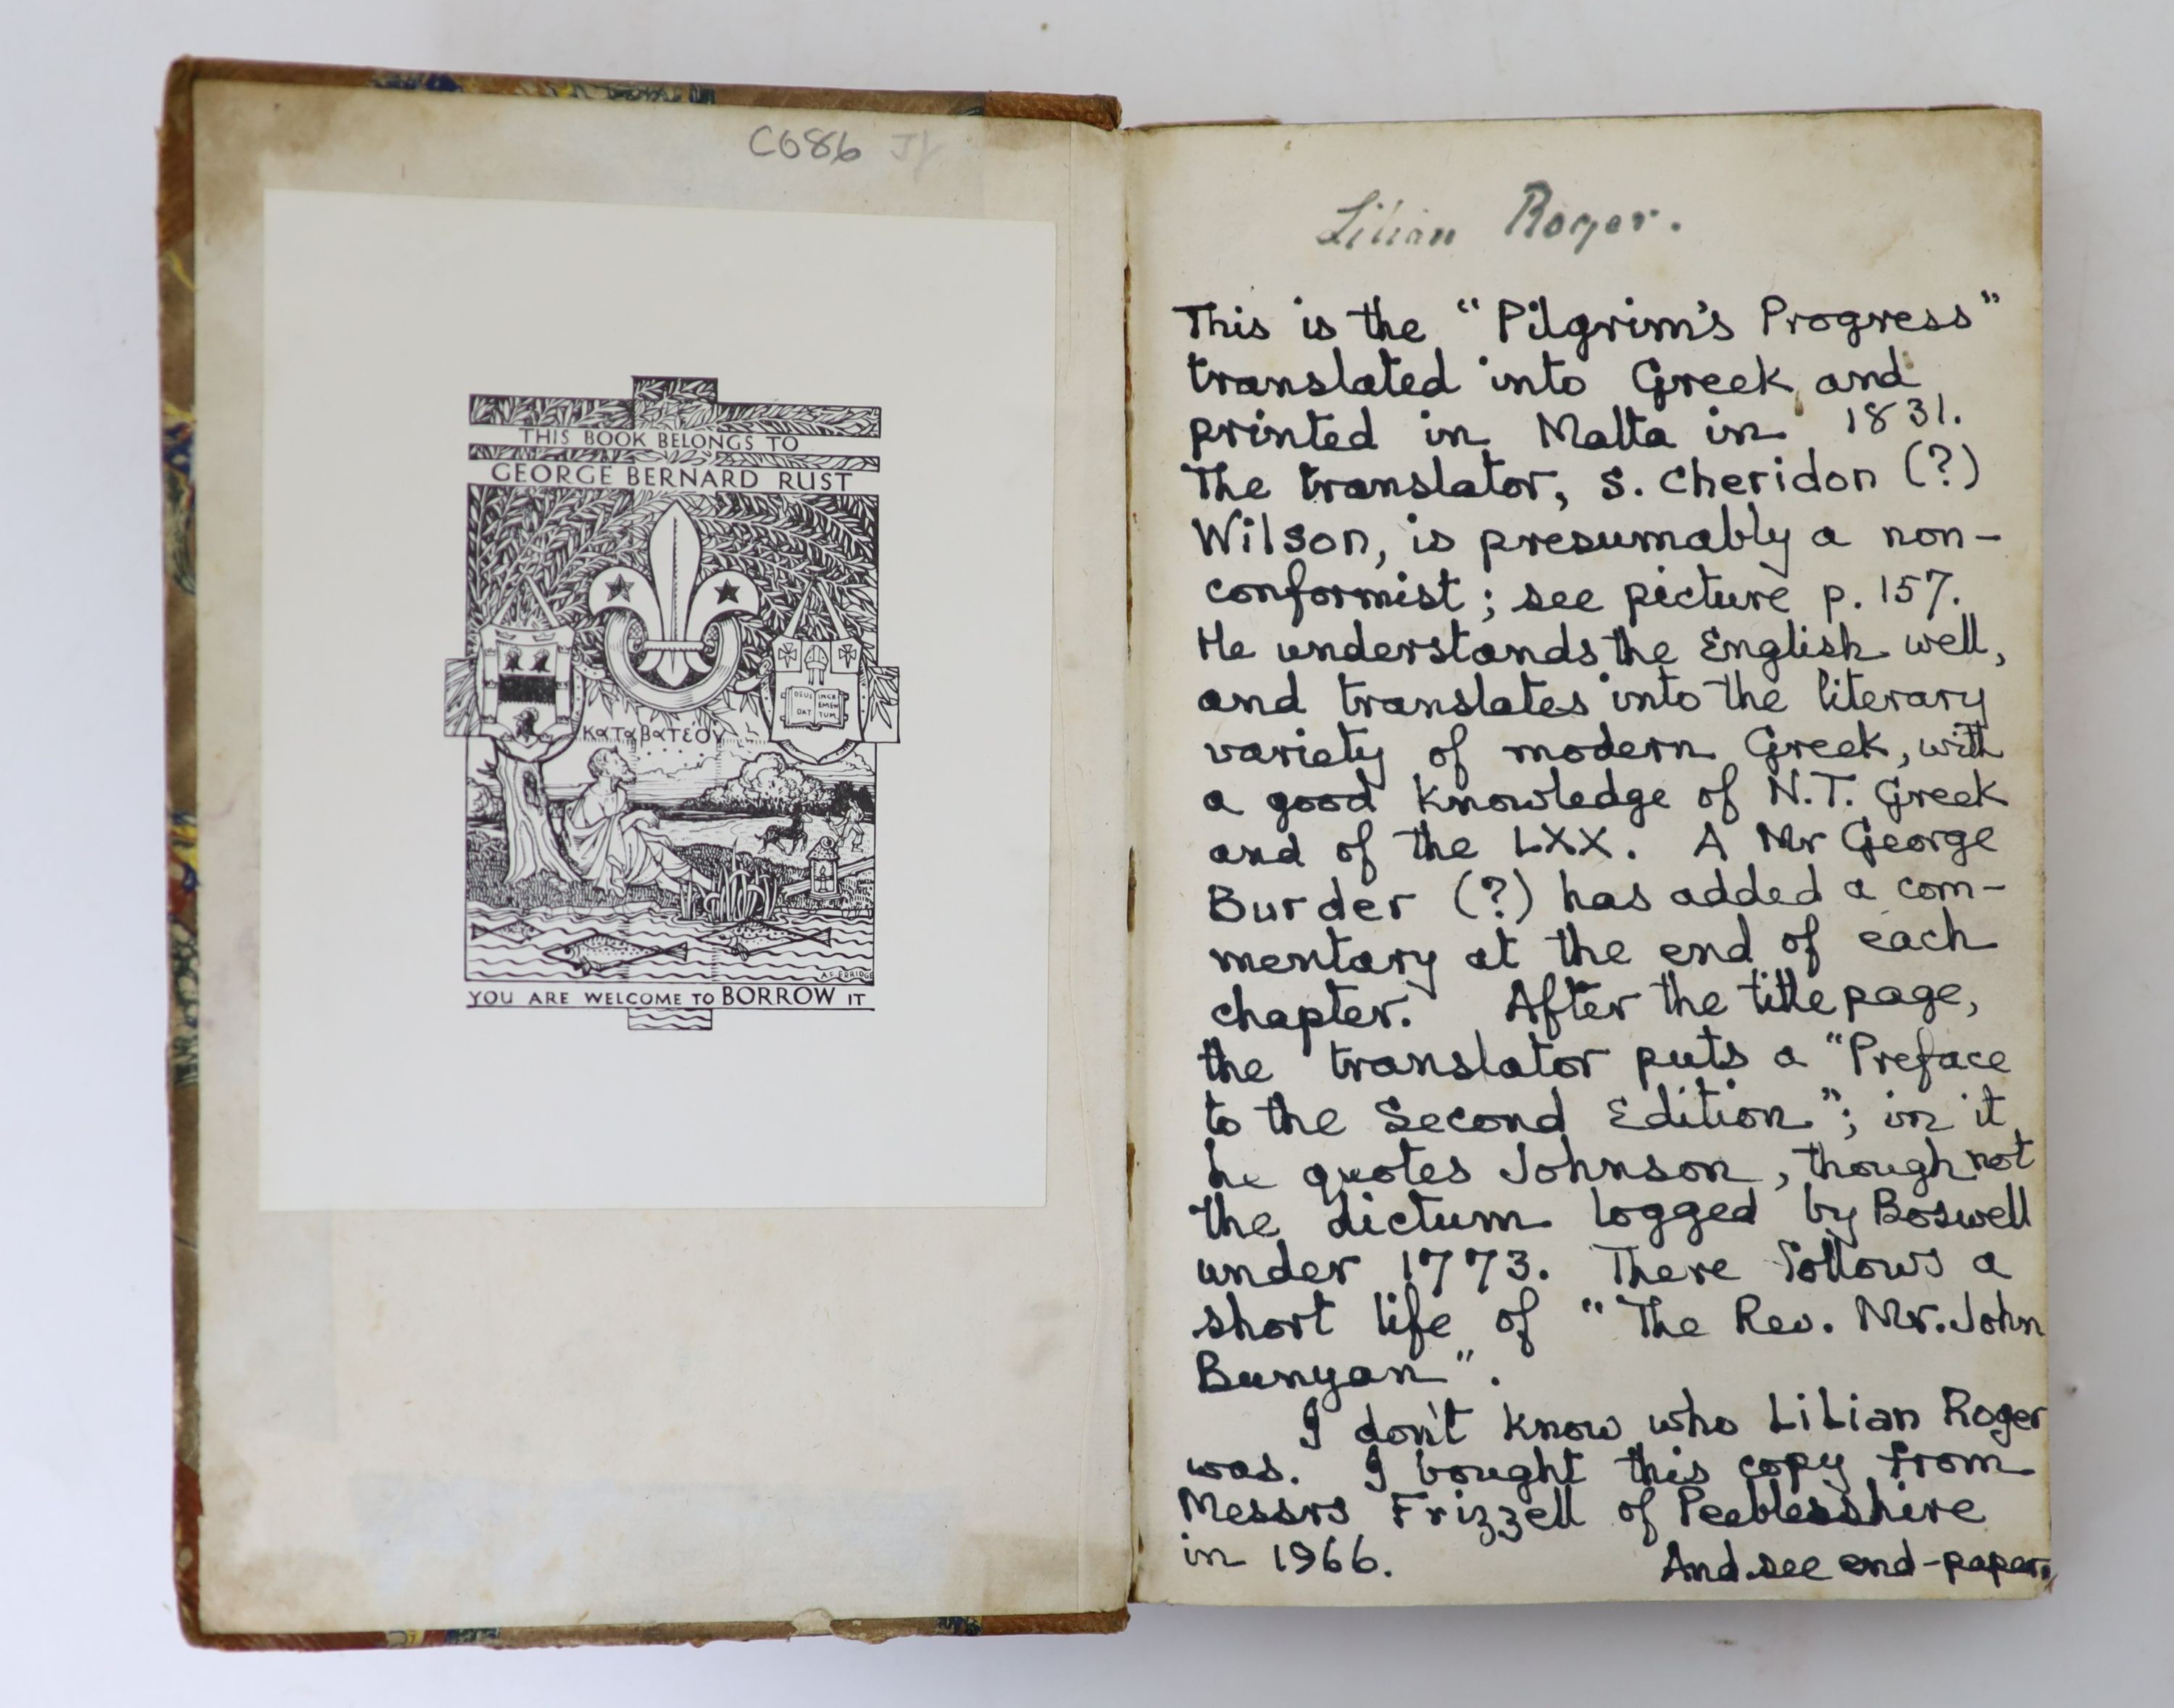 C686
THIS BOOK BELONGS TO
GEORGE BERNARD RUST
DEUS INCR
EMEN
DAT TUM
ΚαΤαβαΤέον
A.C. ERRIDGE
YOU ARE WELCOME TO BORROW IT
Lilian Roger.
This is the "Pilgrim's Progress"
translated into Greek and
printed in Malta in 1831.
The translator, S. Cheridon (?)
Wilson, is presumably a non-
conformist; see picture p. 157.
He understands the English well,
and translates into the literary
variety of modern Greek, with
a good knowledge of N.T. Greek
and of the LXX. A Mr George
Burder (?) has added a com-
mentary at the end of each
chapter. After the title page,
the translator puts a "Preface
to the Second Edition"; in it
he quotes Johnson, though not
the dictum logged by Boswell
under 1773. There follows a
short life of "The Rev. Mr. John
Bunyan".
I don't know who LiLian Roger
was. I bought this copy from
Messrs Frizzell of Peeblesshire
in 1966. And see end-paper.